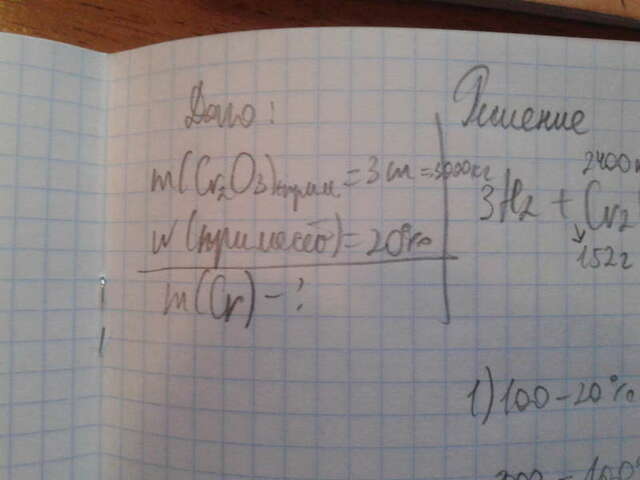 Дано:
m(Cr₂O₃)+прим. = 3 т = 3000 кг
w(примесей) = 20%
m(Cr) - ?
Решение
2400
3H₂ + Cr₂
152г
1) 100 - 20%